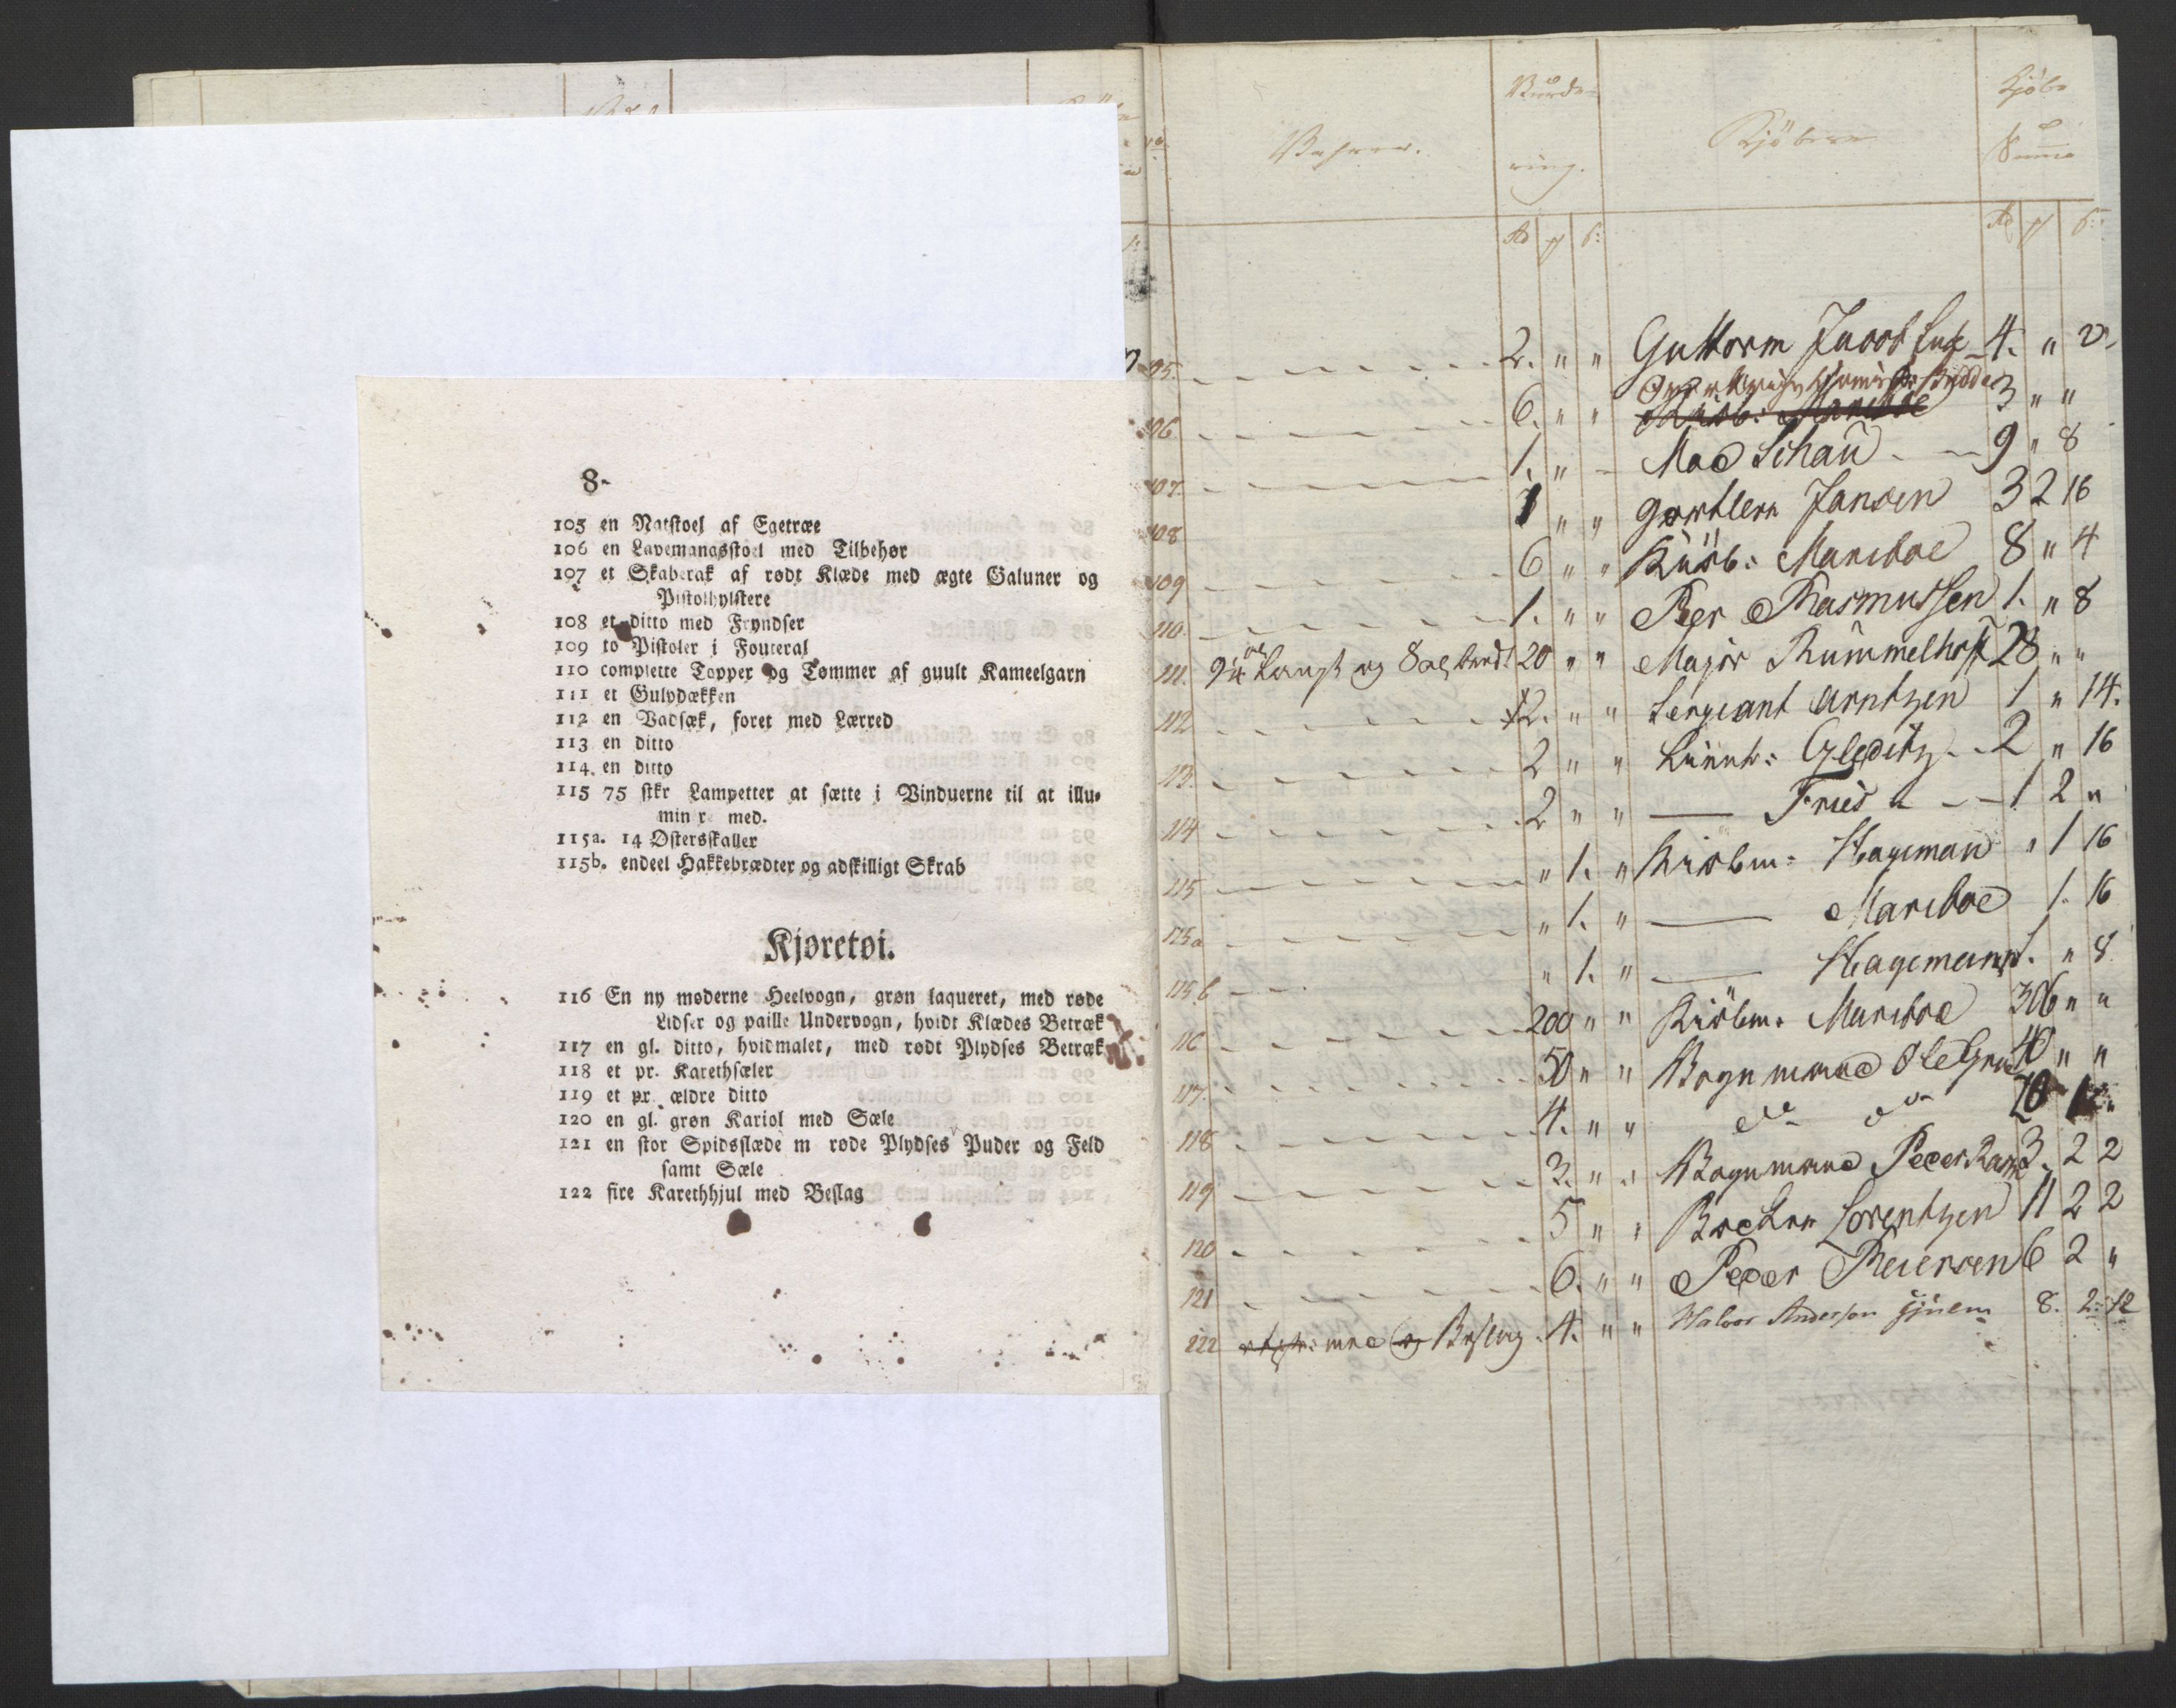 8.
105 en Natstoel af Egetræe
106 en Lavemangsstoel med Tilbehør
107 et Skaberak af rødt Klæde med ægte Galuner og
Pistolhylstere
108 et ditto med Fryndser
109 to Pistoler i Fouteral
110 complette Topper og Tømmer af guult Kameelgarn
111 et Gulvdækken
112 en Vadsæk, foret med Lærred
113 en ditto
114. en ditto
115 75 stkr Lampetter at sætte i Vinduerne til at illu-
min re med.
115a. 14 Østersskaller
115b. endeel Hakkebrædter og adskilligt Skrab
Kjøretøi.
116 En ny moderne Heelvogn, grøn laqueret, med røde
Lidser og paille Undervogn, hvidt Klædes Betræk
117 en gl. ditto, hvidmalet, med rødt Plydses Betræk
118 et pr. Karethsæler
119 et pr. ældre ditto
120 en gl. grøn Kariol med Sæle
121 en stor Spidsslæde m røde Plydses Puder og Feld
samt Sæle
122 fire Karethhjul med Beslag
Vahrer. Vurde- Kjöbere Kjöbe
ring. Summa
Rd
105. 2. " " Guttorm Jacob 4. "
106. 6. " " 3 " "
107. 1. " - Mad Schau 9 " 8
108 " " Jansen 3 2 16
109 6 " " Kiöb: Mariboe 8 " 4
110. 1. " " Per Rasmussen 1. " 8
111. 9¼ al Langt og 8 al bredt 20 " " Major Rummelhoff 28 " "
112 2. " " Sergeant Arntzen 1 " 14.
113. 2 " " Lieut: Gleditz 2 " 16
114 2 " " — Fries 1 2 "
115 " 1. " Kiöbm: Hageman " 1 16
115a " 1. " — Mariboe 1. 16
115b " 1. " — Hageman 1. " 8
116 200 " " Kiöbm. Mariboe 306 " "
117. 50 " " Vognmand Ole 40 " "
118 4. " " do do
119 3. " " Vognmand Peder 3. 2 2
120 5 " " Lorentzen 11 2 2
121 6. " " Peder Reiersen 6 2 "
122 Beslag 4. " " Halvor Anderson 8. 2: 12